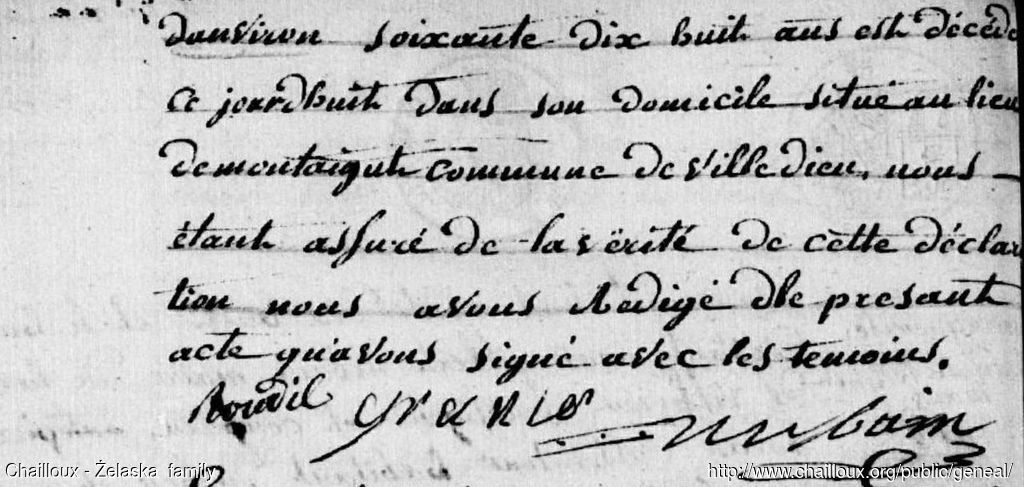 danviron soixante dix huit ans est décédé
ce jourdhuit dans son domicile situé au lieu
demontaigut commune de villedieu, nous
étant assuré de la vérité de cette déclara
tion nous avons Redigé dle presant
acte qu'avons signé avec les temoins.
Chailloux - Żelaska family
http://www.chailloux.org/public/geneal/